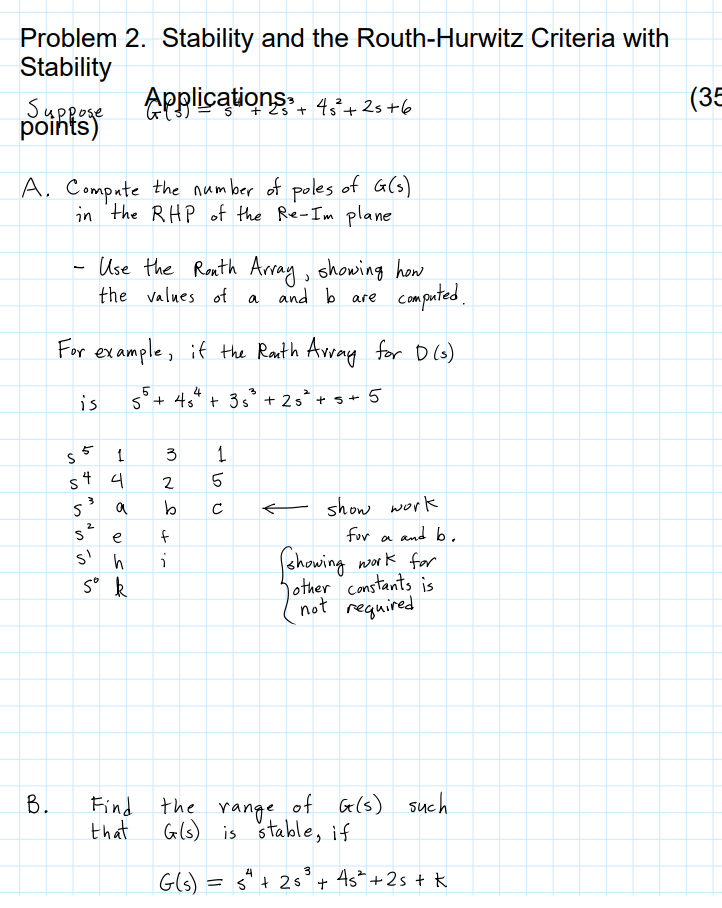 Problem 2. Stability and the Routh-Hurwitz Criteria with
Stability
Applications (35
points)
Suppose G(s) = s⁴ + 2s³ + 4s² + 2s + 6
A. Compute the number of poles of G(s)
in the RHP of the Re-Im plane
- Use the Routh Array, showing how
the values of a and b are computed.
For example, if the Routh Array for D(s)
is s⁵ + 4s⁴ + 3s³ + 2s² + s + 5
s⁵ 1 3 1
s⁴ 4 2 5
s³ a b c ← show work
for a and b.
s² e f
s¹ h i {showing work for
other constants is
s⁰ k
not required
B. Find the range of G(s) such
that G(s) is stable, if
G(s) = s⁴ + 2s³ + 4s² + 2s + k